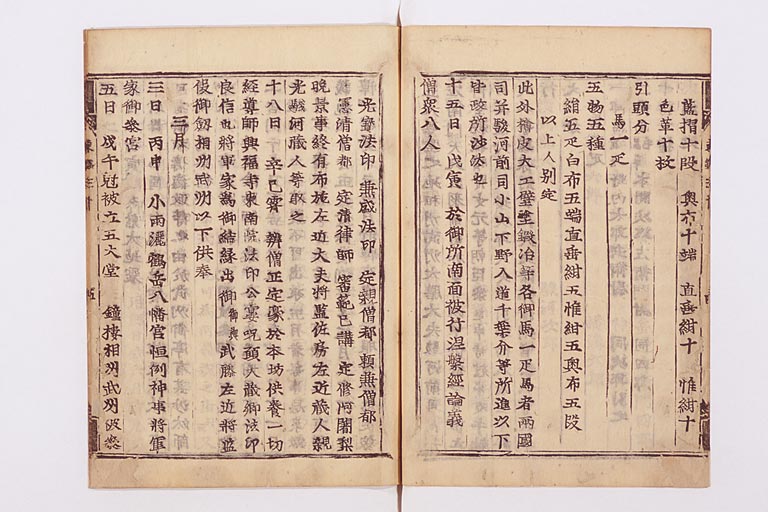 藍摺十段 奥布十端 直垂紺十 帷紺十
色革十枚
引頭分
馬一疋
五物五種
絹五疋白布五端直垂紺五帷紺五奥布五段
以上人別定
此外檜皮大工壁塗鍛冶等各御馬一疋馬者兩國
司并駿河前司小山下野入道千葉介等所進以下
皆政所沙汰也
十五日 戊寅 於御所南面被行涅槃經論義
僧衆八人
光寳法印 兼盛法印 定親僧都 頼兼僧都
隆清僧都 定清律師 審範已講 定修阿闍梨
晩景事終有布施左近大夫將監佐房左近藏人親
光駿河藏人等取之
十八日 辛巳霽 辨僧正定豪於本坊供養一切
經導師興福寺東南院法印公宴呪願大藏卿法印
良信也將軍家爲御結縁出御御輿武藤左近將監
役御劔相州武州以下供奉
三月
三日 丙申 小雨灑鶴岳八幡宮恒例神事將軍
家御參宮
五日 戊午尅被立五大堂 鐘樓相州武州被參